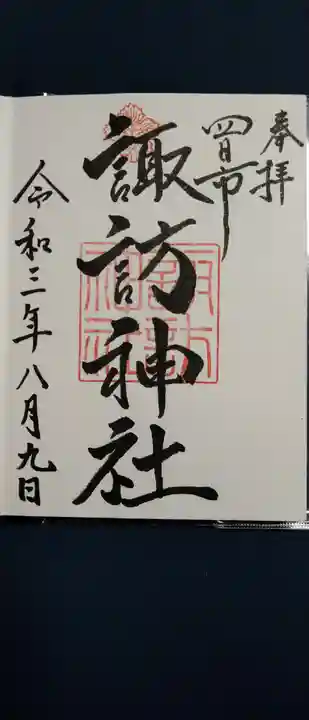 奉拝
四日市
諏訪神社
諏訪
神社
令和三年八月九日